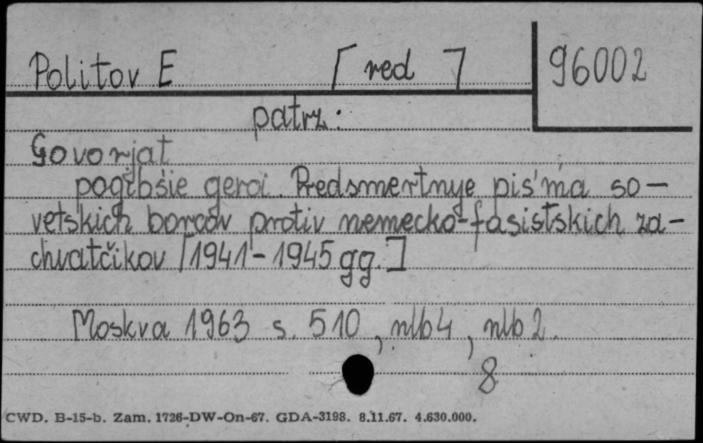 Politov E [red] 96002
patrz:
Govorjat
pogibšie geroi. Predsmertnye pis'ma so-
vetskich borcov protiv nemecko-fašistskich za-
chvatčikov [1941-1945 gg.]
Moskva 1963 s. 510, nlb 4, nlb 2.
8
CWD. B-15-b. Zam. 1726-DW-On-67. GDA-3198. 8.11.67. 4.630.000.